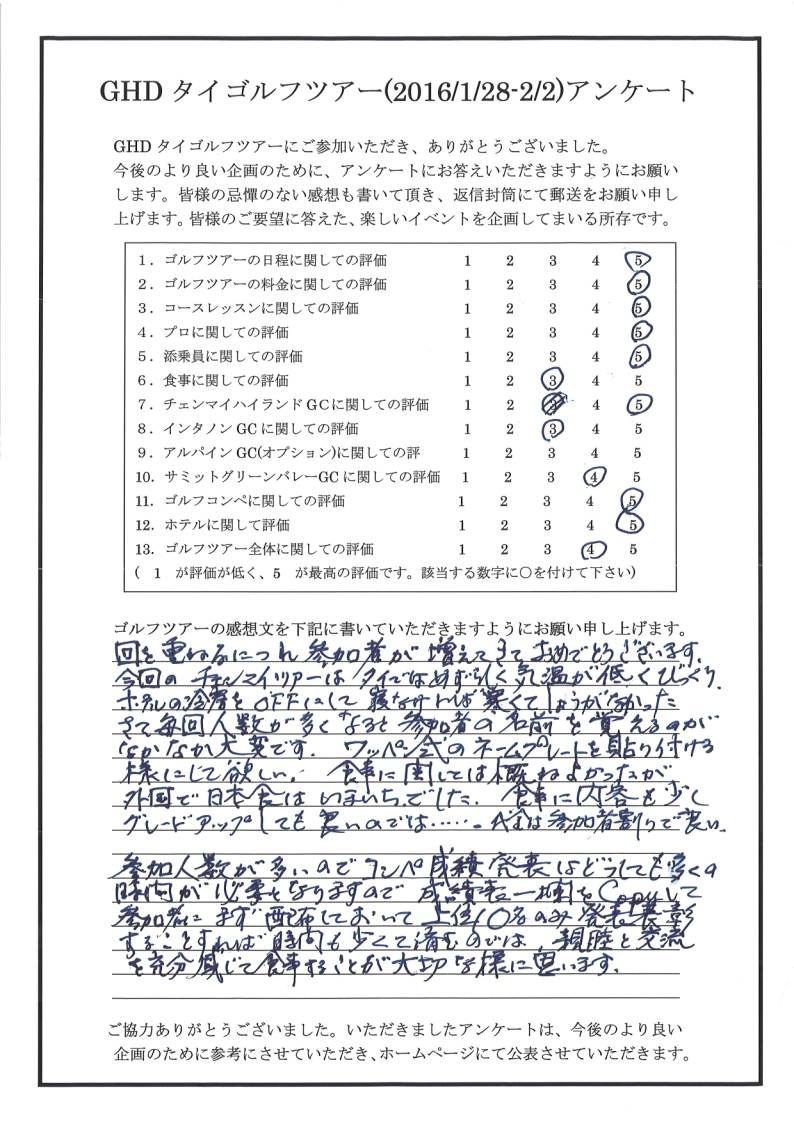 GHD タイゴルフツアー(2016/1/28-2/2)アンケート
GHD タイゴルフツアーにご参加いただき、ありがとうございました。
今後のより良い企画のために、アンケートにお答えいただきますようにお願い
します。皆様の忌憚のない感想も書いて頂き、返信封筒にて郵送をお願い申し
上げます。皆様のご要望に答えた、楽しいイベントを企画してまいる所存です。
1．ゴルフツアーの日程に関しての評価 1 2 3 4 5
2．ゴルフツアーの料金に関しての評価 1 2 3 4 5
3．コースレッスンに関しての評価 1 2 3 4 5
4．プロに関しての評価 1 2 3 4 5
5．添乗員に関しての評価 1 2 3 4 5
6．食事に関しての評価 1 2 3 4 5
7．チェンマイハイランドＧＣに関しての評価 1 2 3 4 5
8．インタノンGCに関しての評価 1 2 3 4 5
9．アルパインGC(オプション)に関しての評 1 2 3 4 5
10．サミットグリーンバレーGCに関しての評価 1 2 3 4 5
11．ゴルフコンペに関しての評価 1 2 3 4 5
12．ホテルに関して評価 1 2 3 4 5
13．ゴルフツアー全体に関しての評価 1 2 3 4 5
( 1 が評価が低く、5 が最高の評価です。該当する数字に○を付けて下さい)
ゴルフツアーの感想文を下記に書いていただきますようにお願い申し上げます。
回を重ねるにつれ参加者が増えてきておめでとうございます.
今回のチェンマイツアーはタイではめずらしく気温が低くびっくり.
ホテルの冷房をOFFにして寝なければ寒くてしょうがなかった
さて毎回人数が多くなると参加者の名前を覚えるのが
なかなか大変です. ワッペン式のネームプレートを貼り付ける
様にして欲しい. 食事に関しては概ねよかったが
外国で日本食はいまいちでした. 食事に内容も少し
グレードアップしても良いのでは……. 代金は参加者割りで良い.
参加人数が多いのでコンペ成績発表はどうしても多くの
時間が必要となりますので成績表一欄をCopyして
参加者にまず配布しておいて上位10名のみ発表表彰
することすれば時間も少くて済むのでは、親睦と交流
を充分感じて食事することが大切な様に思います.
ご協力ありがとうございました。いただきましたアンケートは、今後のより良い
企画のために参考にさせていただき、ホームページにて公表させていただきます。